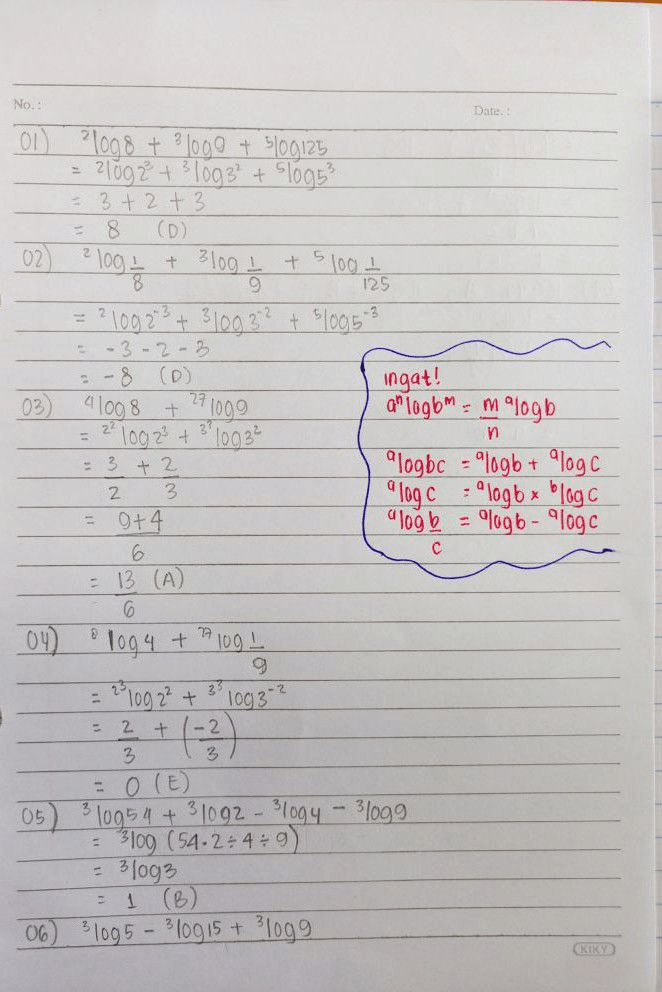 No. :
Date. :
01) ²log8 + ³log9 + ⁵log125
= ²log2³ + ³log3² + ⁵log5³
= 3 + 2 + 3
= 8 (D)
02) ²log 1/8 + ³log 1/9 + ⁵log 1/125
= ²log2⁻³ + ³log3⁻² + ⁵log5⁻³
= -3 - 2 - 3
= -8 (D)
03) ⁴log8 + ²⁷log9
= 2²log2³ + 3³log3²
= 3/2 + 2/3
= 9+4/6
= 13/6 (A)
ingat!
aⁿlogbᵐ = m/n ᵃlogb
ᵃlogbc = ᵃlogb + ᵃlogc
ᵃlogc = ᵃlogb × ᵇlogc
ᵃlog b/c = ᵃlogb - ᵃlogc
04) ⁸log4 + ²⁷log 1/9
= 2³log2² + 3³log3⁻²
= 2/3 + (-2/3)
= 0 (E)
05) ³log54 + ³log2 - ³log4 - ³log9
= ³log (54·2÷4÷9)
= ³log3
= 1 (B)
06) ³log5 - ³log15 + ³log9
KIKY